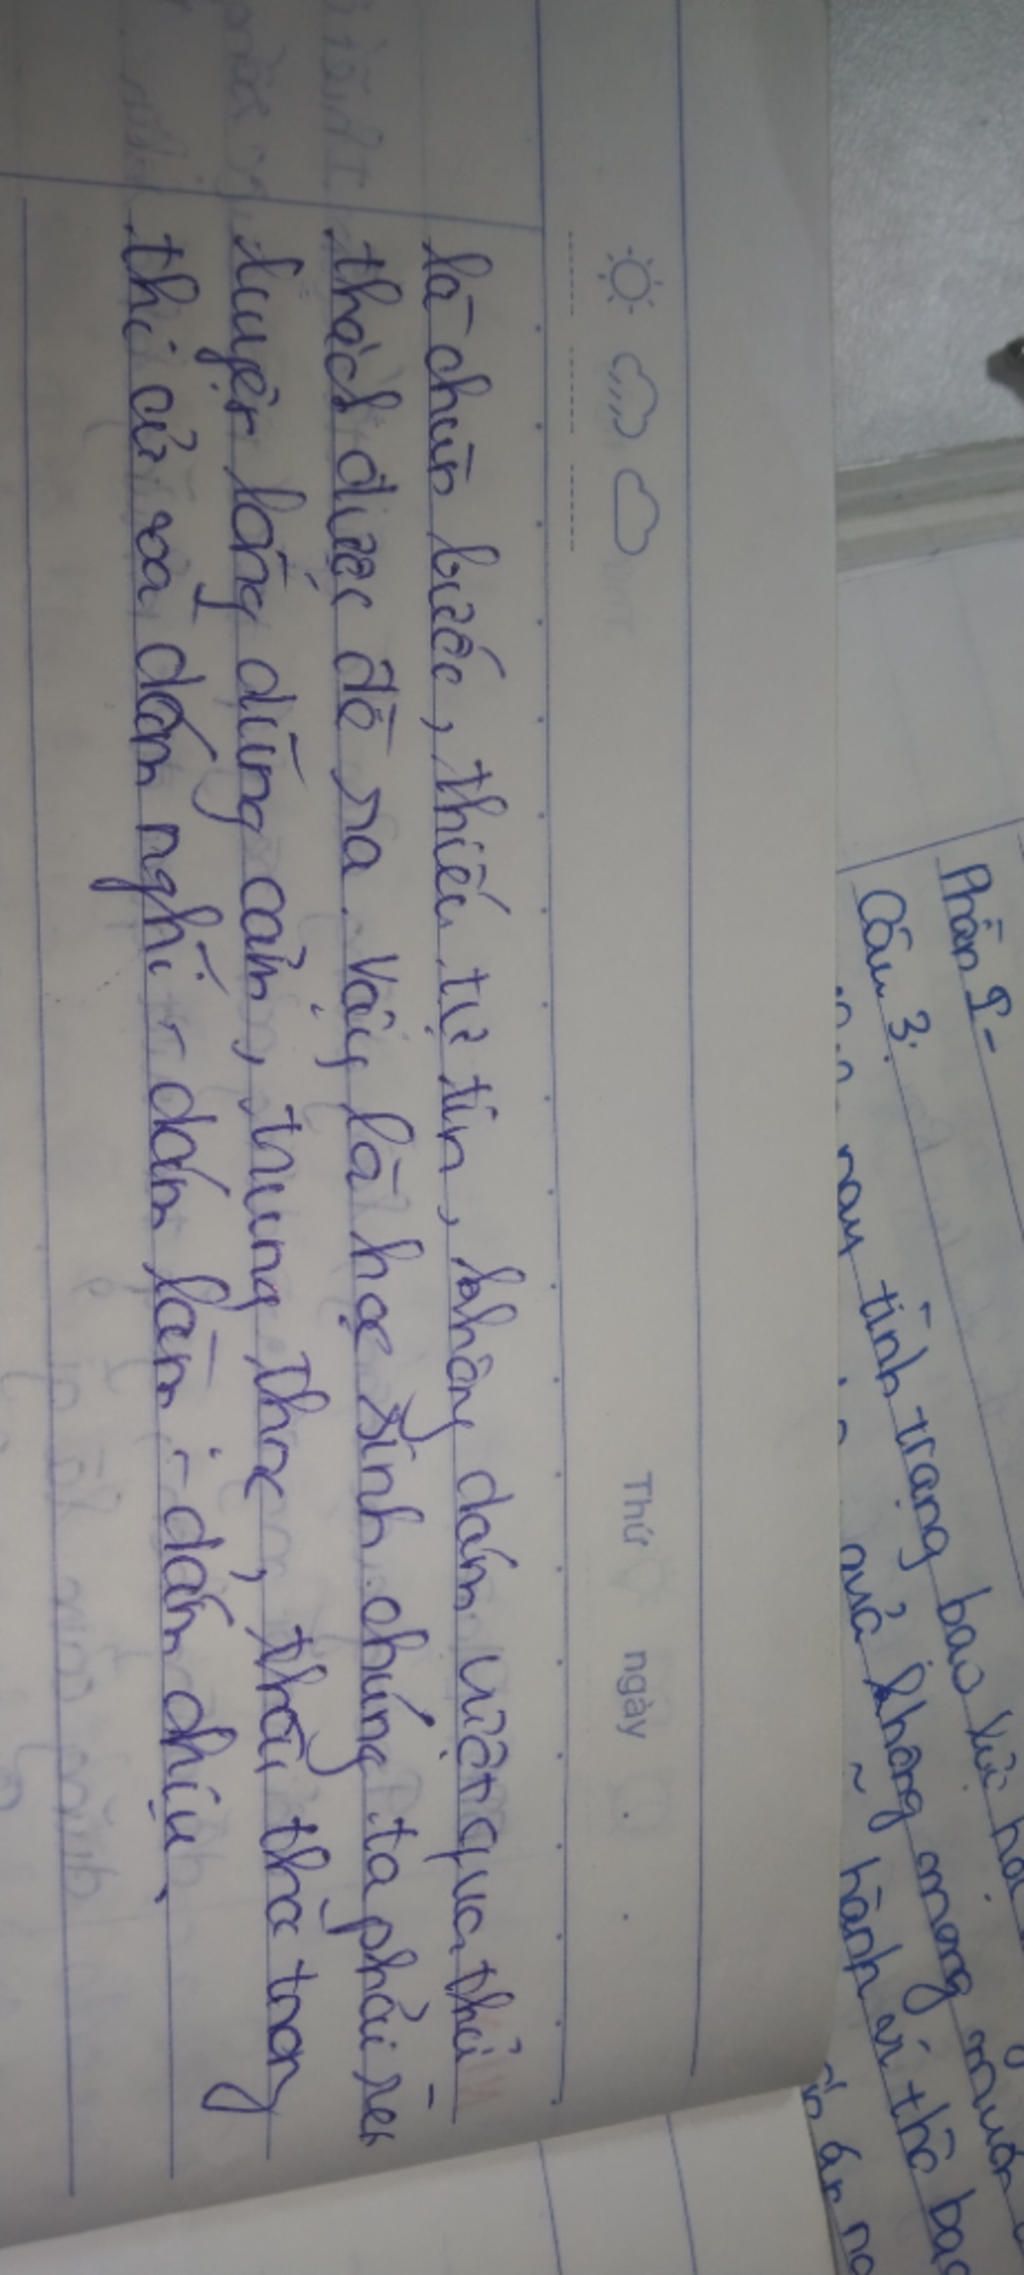 Thứ ngày
là chùn bước, thiếu tự tin, không dám vượt qua thử
thách được đề ra. Vậy là học sinh chúng ta phải rèn
luyện lòng dũng cảm, trung thực, thật thà trong
thi cử và dám nghĩ - dám làm - dám chịu.
Phần I-
Câu 3:
nay tình trạng bao lực
quả không mong muốn
hành vi thô bạo